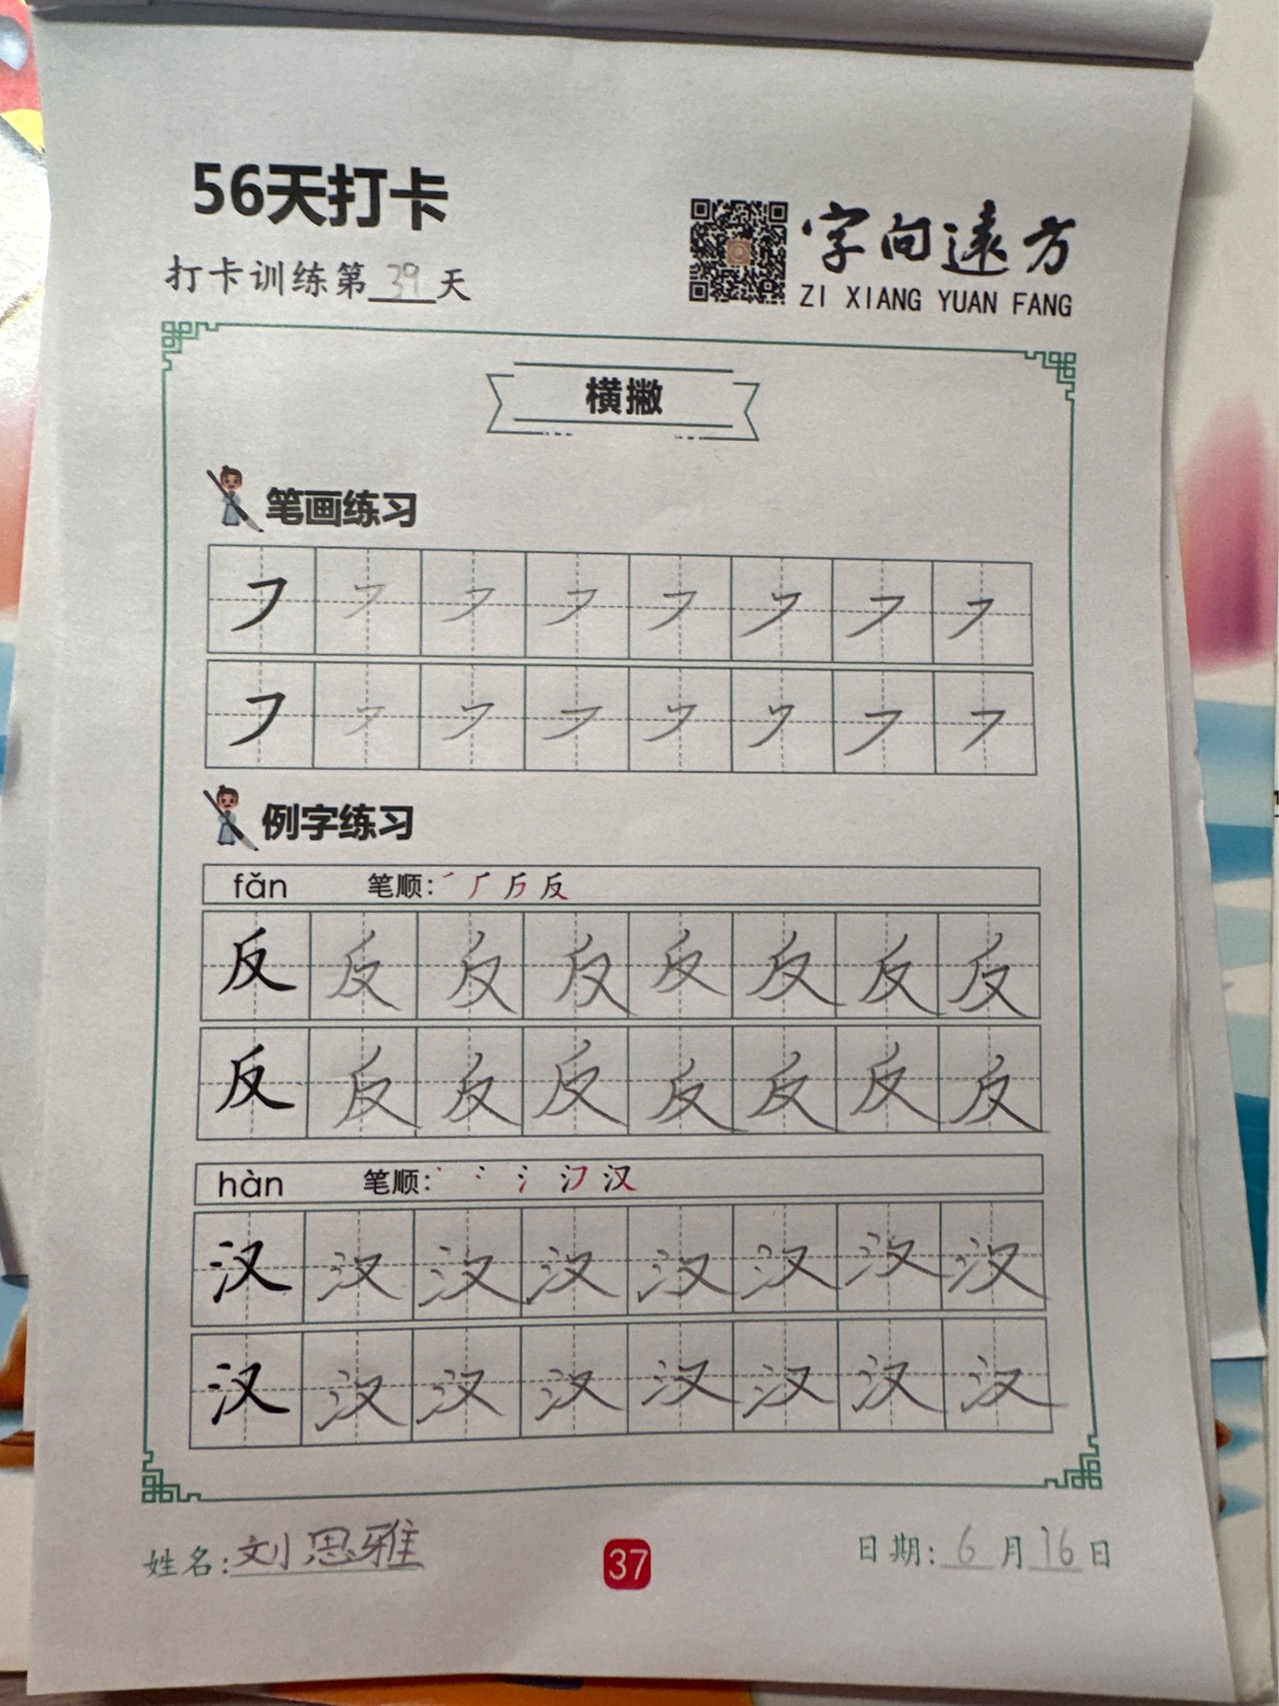 56天打卡
打卡训练第39天
字向遠方
ZI XIANG YUAN FANG
横撇
笔画练习
㇇ ㇇ ㇇ ㇇ ㇇ ㇇ ㇇ ㇇
㇇ ㇇ ㇇ ㇇ ㇇ ㇇ ㇇ ㇇
例字练习
fǎn 笔顺: ㇒ 厂 反
反 反 反 反 反 反 反 反
反 反 反 反 反 反 反 反
hàn 笔顺: 丶 冫 氵 汉
汉 汉 汉 汉 汉 汉 汉 汉
汉 汉 汉 汉 汉 汉 汉 汉
姓名:刘思雅
37
日期:6月16日